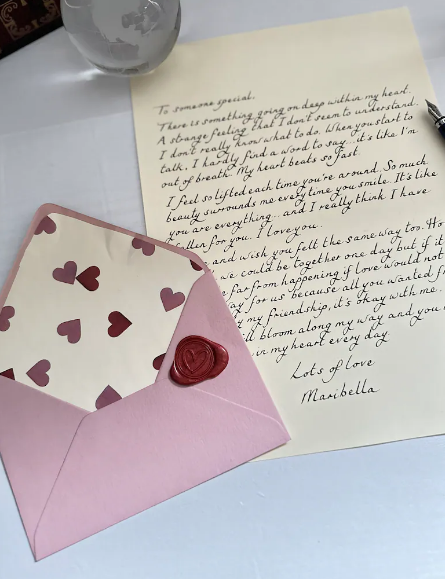 To someone special.
There is something going on deep within my heart.
A strange feeling that I don't seem to understand.
I don't really know what to do. When you start to
talk, I hardly find a word to say...it's like I'm
out of breath. My heart beats so fast.
I feel so lifted each time you're around. So much
beauty surrounds me everytime you smile. It's like
you are everything.. and I really think I have
fallen for you. I love you.
and wish you felt the same way too. Ho
we could be together one day but if it
far from happening if love would not
way for us because all you wanted f
my friendship, it's okay with me.
bloom along my way and you
in my heart every day
Lots of love
Maribella